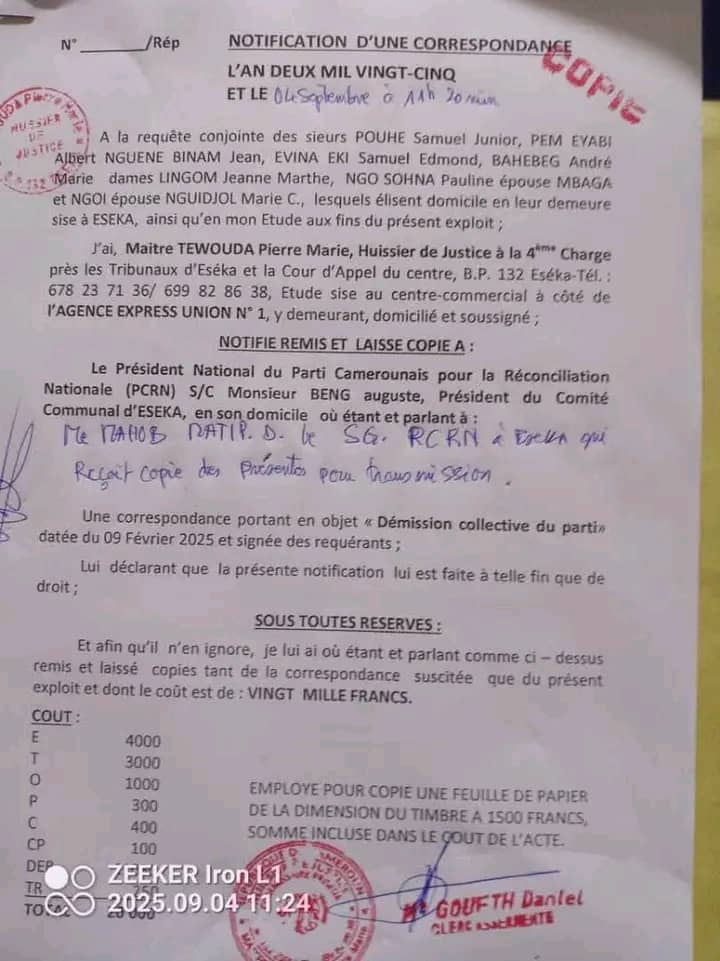 N° _______/Rép
NOTIFICATION D'UNE CORRESPONDANCE
COPIE
L'AN DEUX MIL VINGT-CINQ
ET LE 04 Septembre à 11h 20 min
HUISSIER
DE
JUSTICE
A la requête conjointe des sieurs POUHE Samuel Junior, PEM EYABI
Albert NGUENE BINAM Jean, EVINA EKI Samuel Edmond, BAHEBEG André
Marie dames LINGOM Jeanne Marthe, NGO SOHNA Pauline épouse MBAGA
et NGOI épouse NGUIDJOL Marie C., lesquels élisent domicile en leur demeure
sise à ESEKA, ainsi qu'en mon Etude aux fins du présent exploit ;
J'ai, Maitre TEWOUDA Pierre Marie, Huissier de Justice à la 4ème Charge
près les Tribunaux d'Eséka et la Cour d'Appel du centre, B.P. 132 Eséka-Tél. :
678 23 71 36/ 699 82 86 38, Etude sise au centre-commercial à côté de
l'AGENCE EXPRESS UNION N° 1, y demeurant, domicilié et soussigné ;
NOTIFIE REMIS ET LAISSE COPIE A :
Le Président National du Parti Camerounais pour la Réconciliation
Nationale (PCRN) S/C Monsieur BENG auguste, Président du Comité
Communal d'ESEKA, en son domicile où étant et parlant à :
Me MAHOB MATIP. D. le SG. PCRN à Eseka qui
Reçoit copie des présentes pour transmission.
Une correspondance portant en objet « Démission collective du parti»
datée du 09 Février 2025 et signée des requérants ;
Lui déclarant que la présente notification lui est faite à telle fin que de
droit ;
SOUS TOUTES RESERVES :
Et afin qu'il n'en ignore, je lui ai où étant et parlant comme ci – dessus
remis et laissé copies tant de la correspondance suscitée que du présent
exploit et dont le coût est de : VINGT MILLE FRANCS.
COUT :
E 4000
T 3000
O 1000
P 300
C 400
CP 100
DEP
TR 250
TOTAL 20 000
EMPLOYE POUR COPIE UNE FEUILLE DE PAPIER
DE LA DIMENSION DU TIMBRE A 1500 FRANCS,
SOMME INCLUSE DANS LE COUT DE L'ACTE.
Me GOUETH Daniel
CLERC ASSERMENTE
ZEEKER Iron L1
2025.09.04 11:24